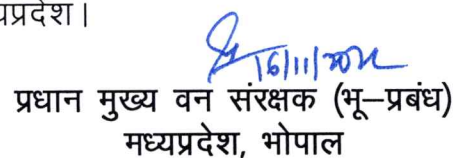 यप्रदेश।
प्रधान मुख्य वन संरक्षक (भू–प्रबंध)
मध्यप्रदेश, भोपाल